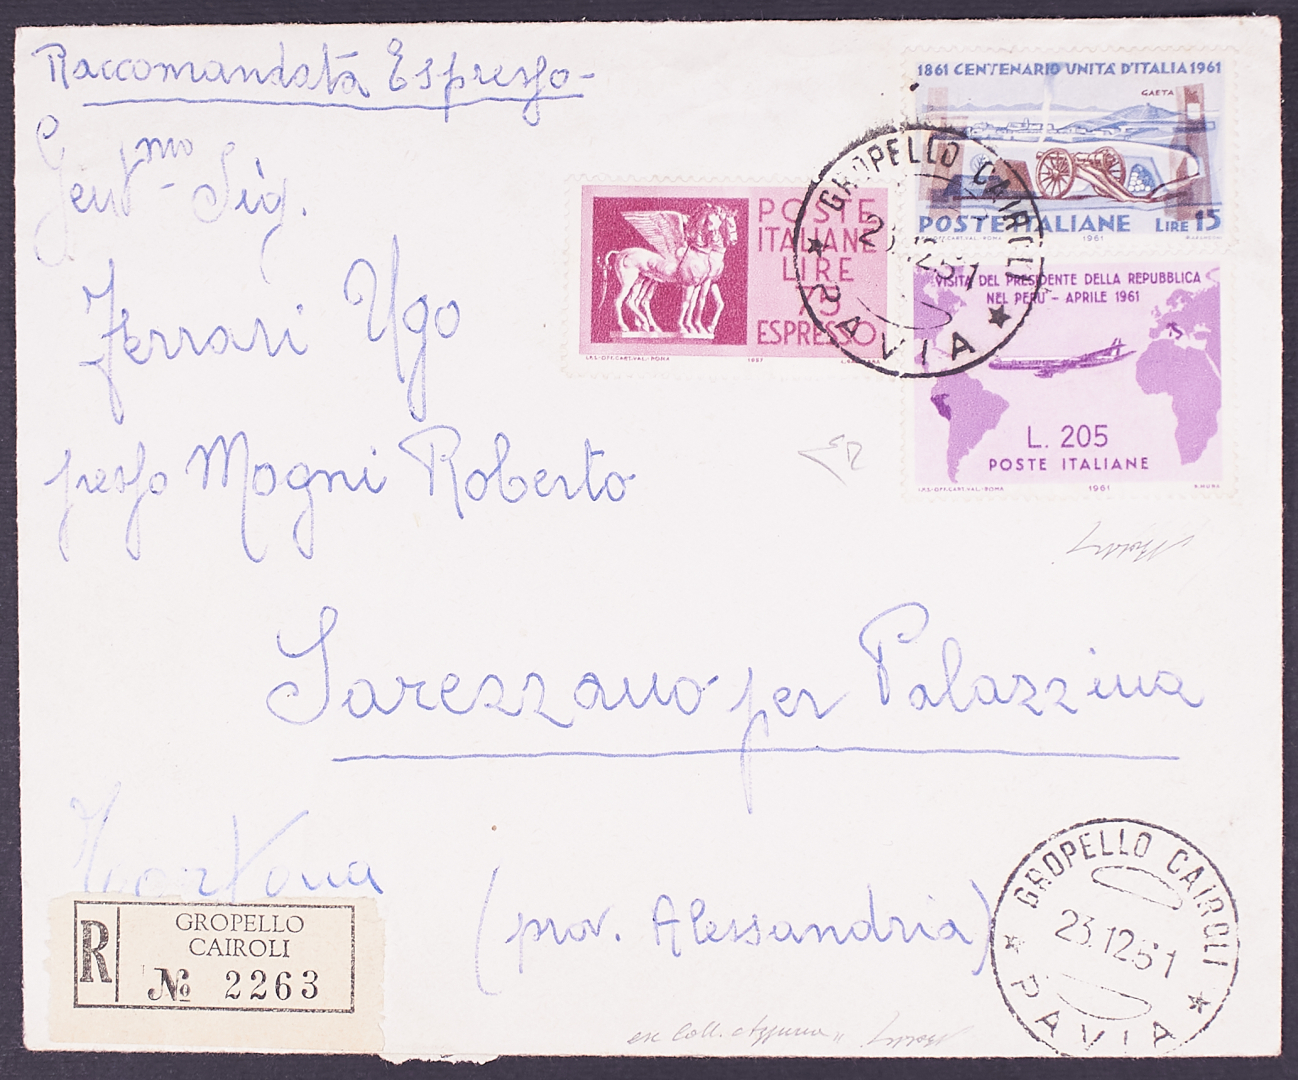 Raccomandata Espresso-
Gent.mo Sig.
Ferrari Ugo
presso Mogni Roberto
Sarezzano per Palazzina
Tortona
(prov. Alessandria)
1861 CENTENARIO UNITÀ D'ITALIA 1961
GAETA
POSTE ITALIANE LIRE 15
I.P.S.-OFF.CART.VAL.-ROMA 1961
POSTE
ITALIANE
LIRE
75
ESPRESSO
I.P.S.-OFF.CART.VAL.-ROMA
GROPELLO CAIROLI
23.12.61
PAVIA
VISITA DEL PRESIDENTE DELLA REPUBBLICA
NEL PERU' - APRILE 1961
L. 205
POSTE ITALIANE
I.P.S.-OFF.CART.VAL.-ROMA 1961
R
GROPELLO
CAIROLI
№ 2263
GROPELLO CAIROLI
23.12.61
PAVIA
ex Coll. Azzurra"